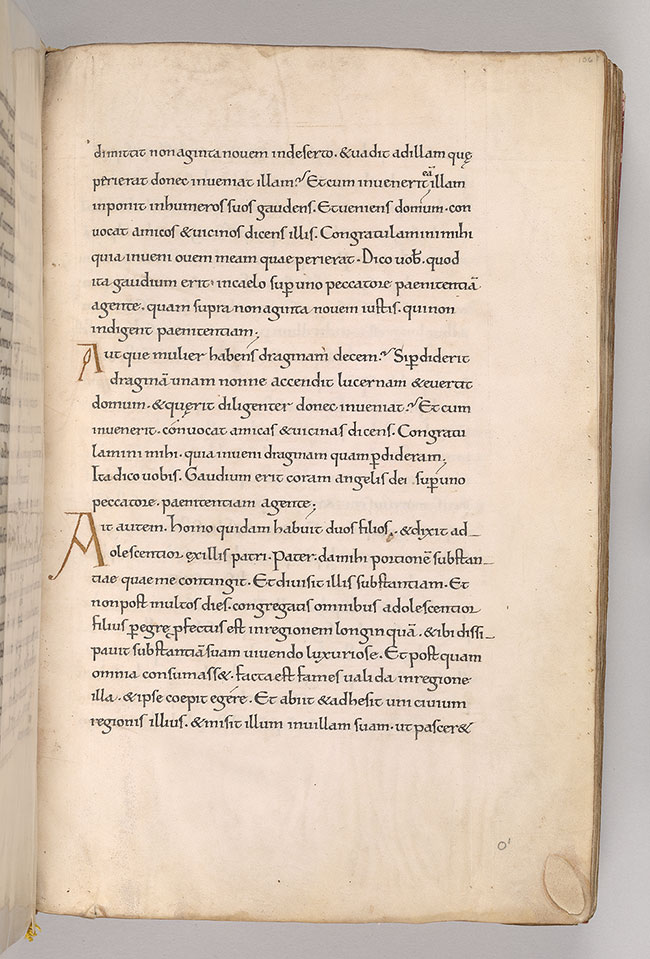 106
dimittit nonaginta novem indeserto. &uadit adillam quę
perierat donec inueniat illam? Et cum inuenerit eā illam
inponit inhumeros suos gaudens. Et ueniens domum. con
uocat amicos &uicinos dicens illis. Congratulamini mihi
quia inueni ouem meam quae perierat. Dico uob̄. quod
ita gaudium erit incaelo sup̄ uno peccatore paenitentiā
agente. quam supra nonaginta nouem iustis. qui non
indigent paenitentiam;
Aut que mulier habens dragmam decem? Si p̄diderit
dragmā unam nonne accendit lucernam &euertit
domum. &quęrit diligenter donec inueniat? Et cum
inuenerit. conuocat amicas &uicinas dicens. Congratu
lamini mihi. quia inueni dragmam quam p̄dideram.
Ita dico uobis. Gaudium erit coram angelis dei sup̄ uno
peccatore. paenitentiam agente;
Ait autem. Homo quidam habuit duos filios. &dixit ad
olescentior exillis patri. Pater. da mihi portionē substan
tiae quae me contingit. Et diuisit illis substantiam. Et
non post multos dies. congregatis omnibus adolescentior
filius p̄egre p̄fectus est in regionem longinquā. &ibi dissi
pauit substantiā suam uiuendo luxuriose. Et postquam
omnia consumass&. facta est fames ualida in regione
illa. &ipse coepit egere. Et abiit &adhesit uni ciuium
regionis illius. &misit illum in uillam suam. ut pascer&
o'